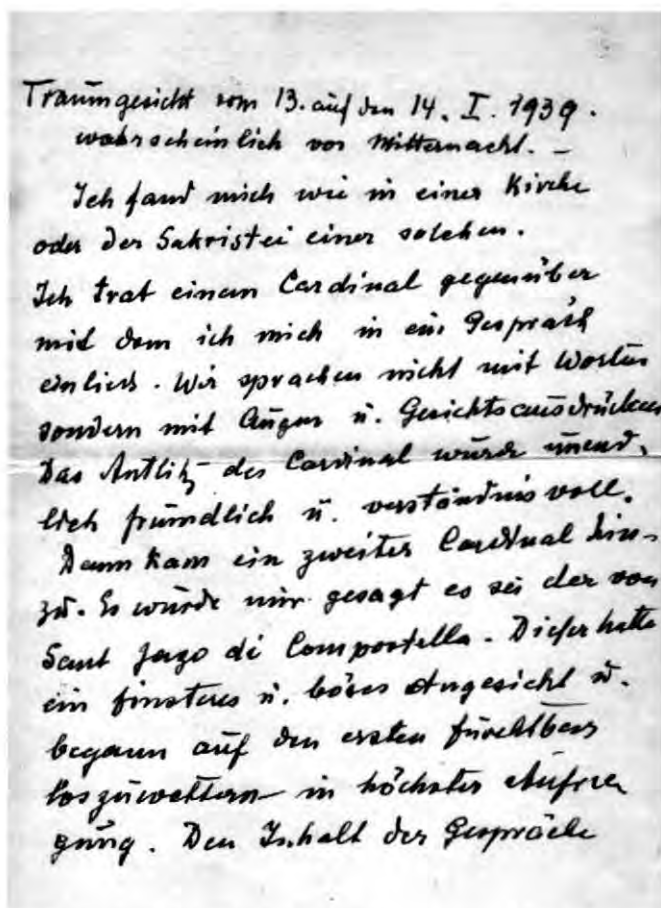 Traumgesicht vom 13. auf den 14. I. 1939.
wahrscheinlich vor Mitternacht. –
Ich fand mich wie in einer Kirche
oder der Sakristei einer solchen.
Ich trat einem Cardinal gegenüber
mit dem ich mich in ein Gespräch
einliess. Wir sprachen nicht mit Worten
sondern mit Augen u. Gesichtsausdrücken
Das Antlitz des Cardinal wurde unend-
lich freundlich u. verständnisvoll.
Dann kam ein zweiter Cardinal hin-
zu. Es wurde mir gesagt es sei der von
Sant Jago di Compostella. Dieser hatte
ein finsteres u. böses Angesicht u.
begann auf den ersten furchtbar
loszuwettern in höchster Aufre
gung. Den Inhalt der Gespräche